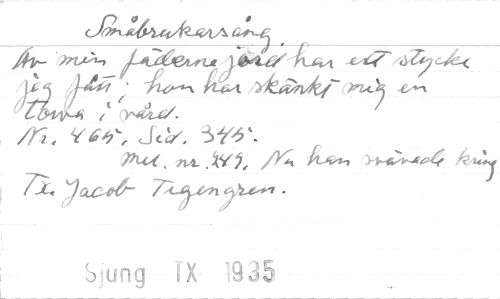 Småbrukarsång.
Av min fäderne jord har ett stycke
jag fått; hon har skänkt mig en
torva i vård.
Nr. 465. Sid. 345.
mel. nr. 249. Nu han svävade kring
Tx. Jacob Tegengren.
Sjung IX 1935